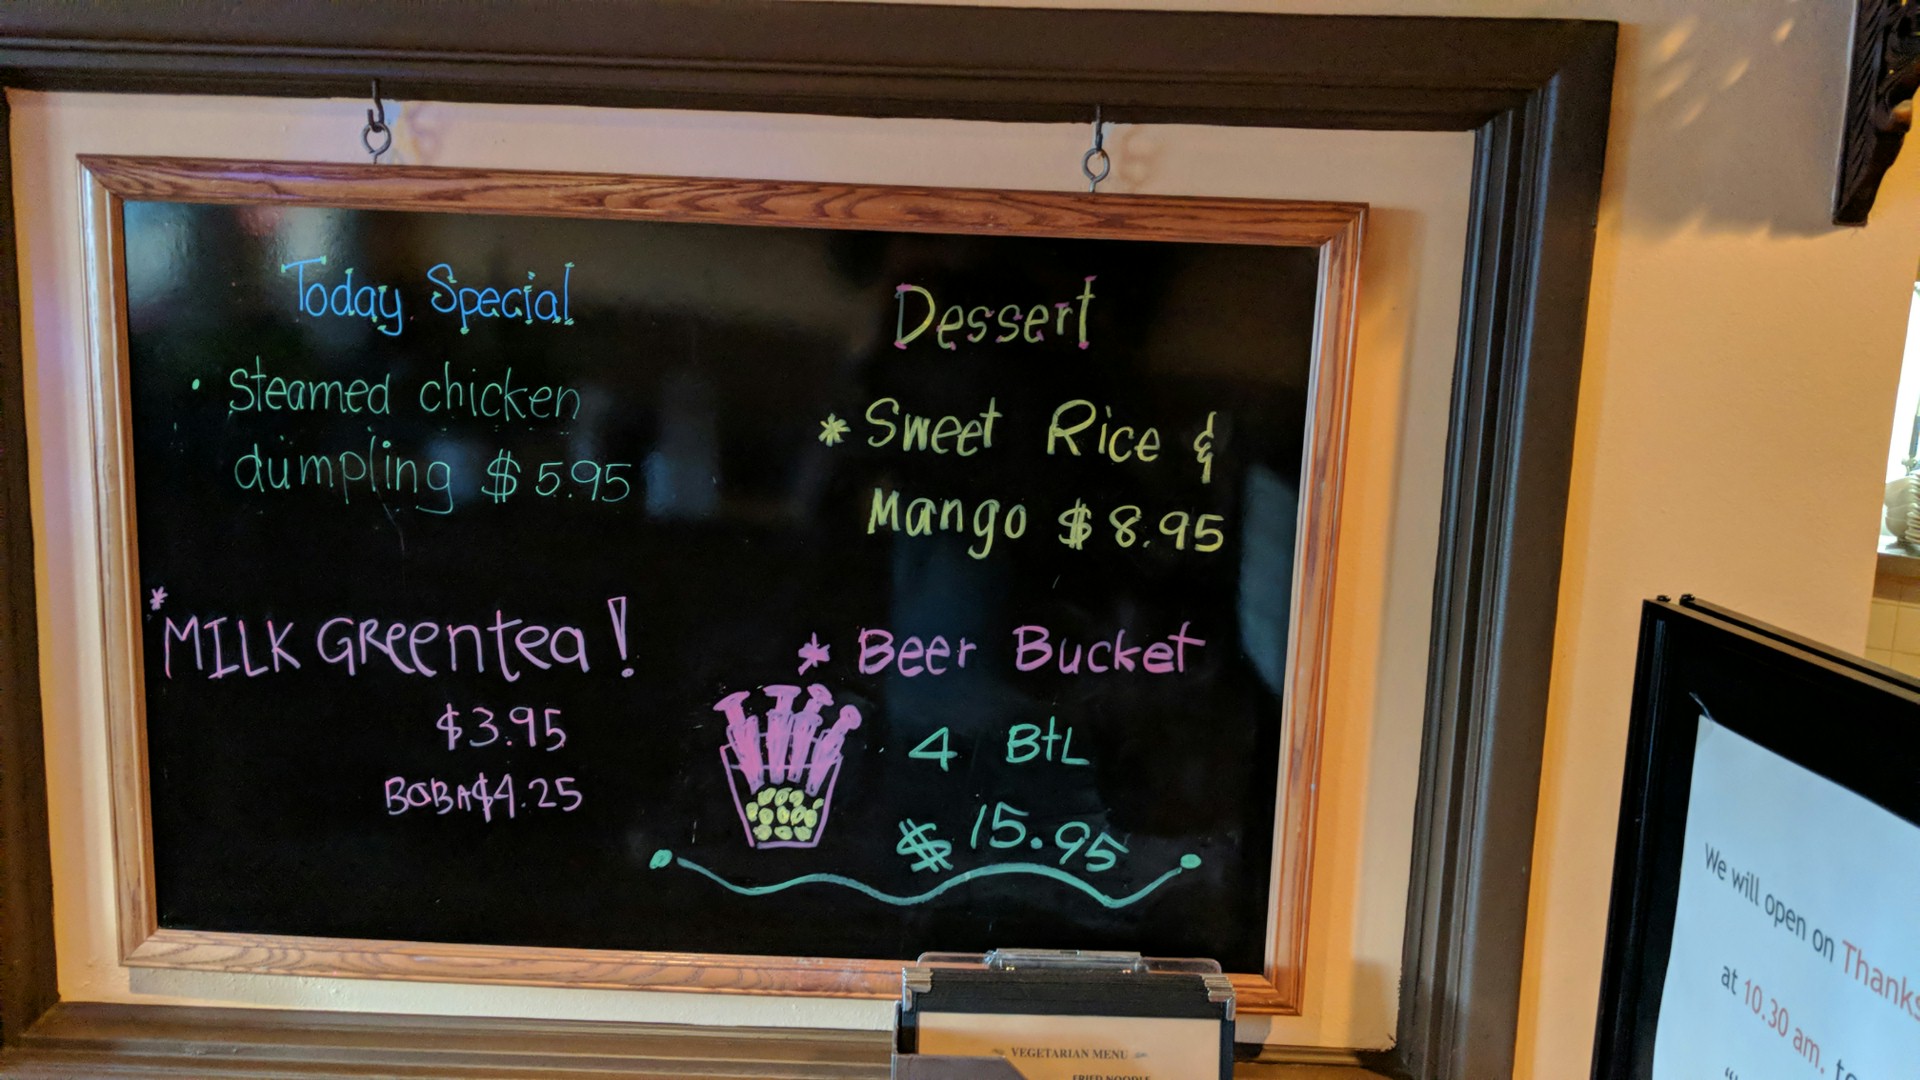 Today Special
• Steamed chicken
dumpling $5.95
* MILK GReentea!
$3.95
BOBA $4.25
Dessert
* Sweet Rice &
Mango $8.95
* Beer Bucket
4 BtL
$15.95
VEGETARIAN MENU
FRIED NOODLE
We will open on
at 10.30 am.